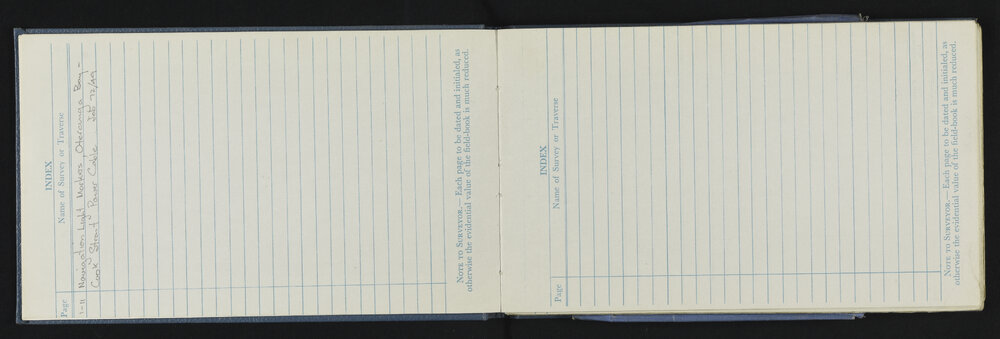 INDEX
Page Name of Survey or Traverse
1-11 Navigation Light Markers, Oteranga Bay –
Cook Strait Power Cable. Job 72/49
NOTE TO SURVEYOR.— Each page to be dated and initialed, as
otherwise the evidential value of the field-book is much reduced.
INDEX
Page Name of Survey or Traverse
NOTE TO SURVEYOR.— Each page to be dated and initialed, as
otherwise the evidential value of the field-book is much reduced.